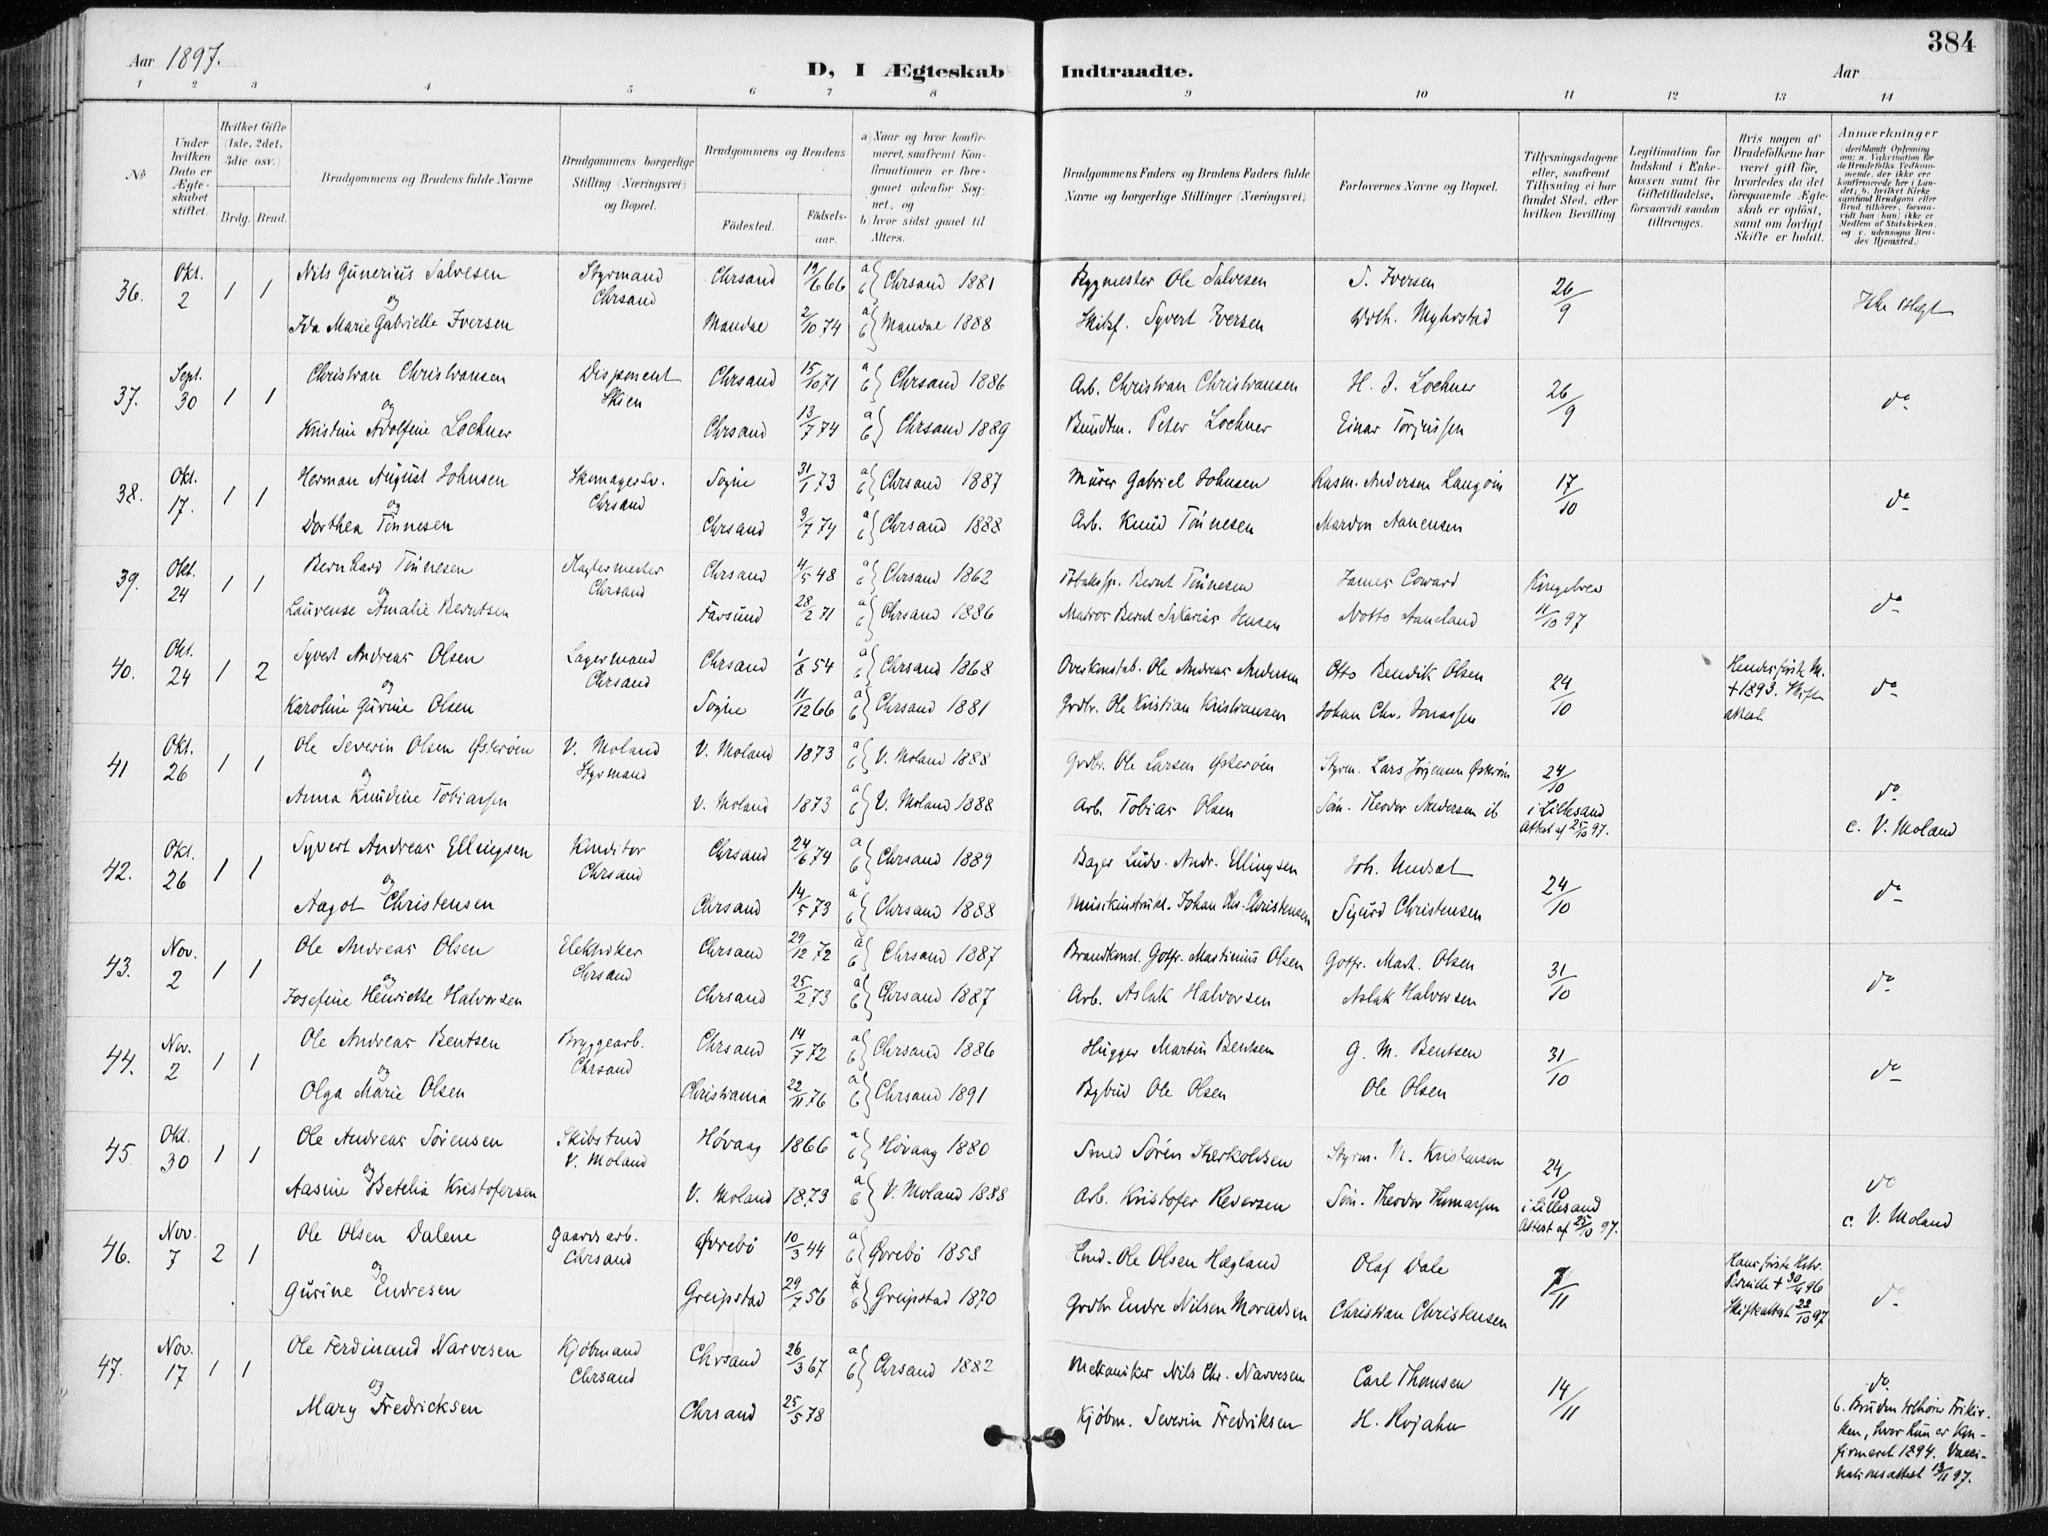 384
Aar 1897.
D, I Ægteskab Indtraadte.
Aar
1 2 3 4 5 6 7 8 9 10 11 12 13 14
No
Under hvilken Dato er Ægteskabet stiftet.
Hvilket Gifte (1ste, 2det, 3die osv.)
Brdg. Brud.
Brudgommens og Brudens fulde Navne
Brudgommens borgerlige Stilling (Næringsvei) og Bopæl.
Brudgommens og Brudens
Fødested.
Fødselsaar.
a) Naar og hvor konfirmeret, saafremt Konfirmationen er foregaaet udenfor Sognet, og
b) hvor sidst gaaet til Alters.
Brudgommens Faders og Brudens Faders fulde Navne og borgerlige Stillinger (Næringsvei)
Forlovernes Navne og Bopæl.
Tillysningsdagene eller, saafremt Tillysning ei har fundet Sted, efter hvilken Bevilling.
Legitimation for Indskud i Enkekassen samt for Giftetilladelse, forsaavidt saadan tiltrænges.
Hvis nogen af Brudefolkene har været gift før, hvorledes da det foregaaende Ægteskab er opløst, samt om lovligt Skifte er holdt.
Anmærkninger
deriblandt Oplysning om: a. Vakcination for de Brudefolks Vedkommende, der ikke ere konfirmerede her i Landet; b. hvilket Kirkesamfund Brudgom eller Brud tilhører, forsaavidt han (hun) ikke er Medlem af Statskirken, og c. udensogns Brudes Hjemsted.
36. Okt. 2 1 1 Nils Gunerius Salvesen Styrmand Chrsand Chrsand 19/6 66 a b } Chrsand 1881 Bygmester Ole Salvesen S. Iversen 26/9
og
Ida Marie Gabrielle Iversen Mandal 2/10 74 a b } Mandal 1888 Skibsf. Syvert Iversen
37. Sept. 30 1 1 Christian Christiansen Disponent Skien Chrsand 15/10 71 a b } Chrsand 1886 Arb. Christian Christiansen H. J. Lochner 26/9 do
og
Kristine Adolfine Lochner Chrsand 13/7 74 a b } Chrsand 1889 Bundtm. Peter Lochner Einar Torjussen
38. Okt. 17. 1 1 Herman August Johnsen Skomagersv. Chrsand Søgne 31/1 73 a b } Chrsand 1887 Murer Gabriel Johnsen Rasm. Andersen 17/10 do
og
Dorthea Tönnesen Chrsand 74 a b } Chrsand 1888 Arb. Knud Tönnesen Aanensen
39. Okt. 24 1 1 Bernhard Tönnesen Chrsand Chrsand 4/5 48 a b } Chrsand 1862 Bernt Tönnesen James Coward Kongebrev 11/10 97 do
og
Laurense Amalie Berntsen Farsund 28/2 71 a b } Chrsand 1886 Matros Bernt Sakarias Notto Aaneland
40. Okt. 24 1 2 Syvert Andreas Olsen Lagermand Chrsand Chrsand 1/8 54 a b } Chrsand 1868 Overkonstab. Ole Andreas Andersen Otto Bendik Olsen 24/10 Hendes første M. † 1893. Skifteattest. do
og
Karoline Gurine Olsen Søgne 11/12 66 a b } Chrsand 1881 Grdbr. Ole Kristian Kristiansen Johan Chr. Jonassen
41 Okt. 26 1 1 Ole Severin Olsen Østerøen V. Moland Styrmand V. Moland 1873 a b } V. Moland 1888 Grdbr. Ole Larsen Østerøen Styrm. Lars Jørgensen Østerøen 24/10
og
Anna Knudine Tobiassen V. Moland 1873 a b } V. Moland 1888 Arb. Tobias Olsen Søm. Theodor Andersen ib i Lillesand Attest af 25/10 97. do c. V. Moland
42. Okt. 26 1 1 Syvert Andreas Ellingsen Konditor Chrsand Chrsand 24/6 74 a b } Chrsand 1889 Bager Ludv. Andr. Ellingsen Joh. Undsæt 24/10 do
og
Aagot Christensen Chrsand 14/5 73 a b } Chrsand 1888 Musikinstrukt. Johan Chr. Christensen Sigurd Christensen
43. Nov. 2 1 1 Ole Andreas Olsen Elektriker Chrsand Chrsand 29/12 72 a b } Chrsand 1887 Brandkonst. Gotfr. Martinius Olsen Gotfr. Mart. Olsen 31/10 do
og
Josefine Henriette Halvorsen Chrsand 25/2 73 a b } Chrsand 1887 Arb. Aslak Halvorsen Aslak Halvorsen
44. Nov. 2 1 1 Ole Andreas Bentsen Bryggearb. Chrsand Chrsand 14/7 72 a b } Chrsand 1886 Hugger Martin Bentsen G. M. Bentsen 31/10 do
og
Olga Marie Olsen Christiania 22/11 76 a b } Chrsand 1891 Bybud Ole Olsen Ole Olsen
45 Okt. 30 1 1 Ole Andreas Sørensen Skibstmd V. Moland Høvaag 1866 a b } Høvaag 1880 Smed Sørén Styrm. N. Kristensen 24/10
og
Aasine Betelia Kristofersen V. Moland 1873 a b } V. Moland 1888 Arb. Kristofer Reiersen Søm. Theodor Thomassen i Lillesand Attest af 25/10 97. do c. V. Moland
46. Nov. 7 2 1 Ole Olsen Dalene Gaardsarb. Chrsand Øvrebø 10/3 44 a b } Øvrebø 1858 Ole Olsen Hægland Olaf Dale 7/11 Hans første Hstr. Pernille † 30/4 96 Skifteattest 22/10 97 do
og
Gurine Endresen Greipstad 29/7 56 a b } Greipstad 1870 Grdbr Endre Nilsen Christian Christensen
47. Nov. 17 1 1 Ole Ferdinand Narvesen Kjøbmand Chrsand Chrsand 26/3 67 a b } Chrsand 1882 Mekaniker Nils Chr. Narvesen Carl Thomsen 14/11 do
og
Mary Fredricksen Chrsand 25/5 78 Kjøbm. Severin Fredriksen H. Rojahn b. Bruden tilhører Frikirken, hvor hun er Konfirmeret 1894. Vaccinationsattest 13/11 97.